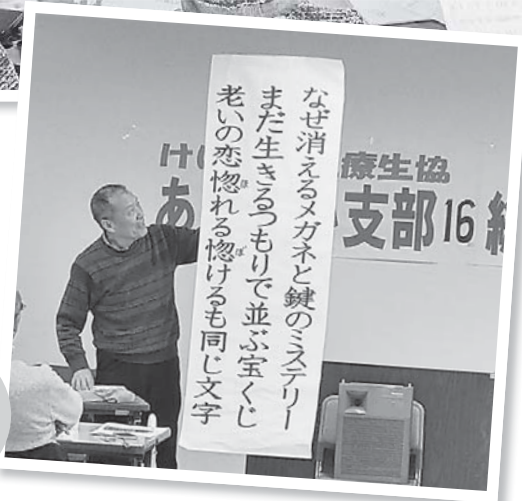 なぜ消えるメガネと鍵のミステリー
まだ生きるつもりで並ぶ宝くじ
老いの恋惚れる惚けるも同じ文字
ほ
ぼ
け
療生協
あ
支部16